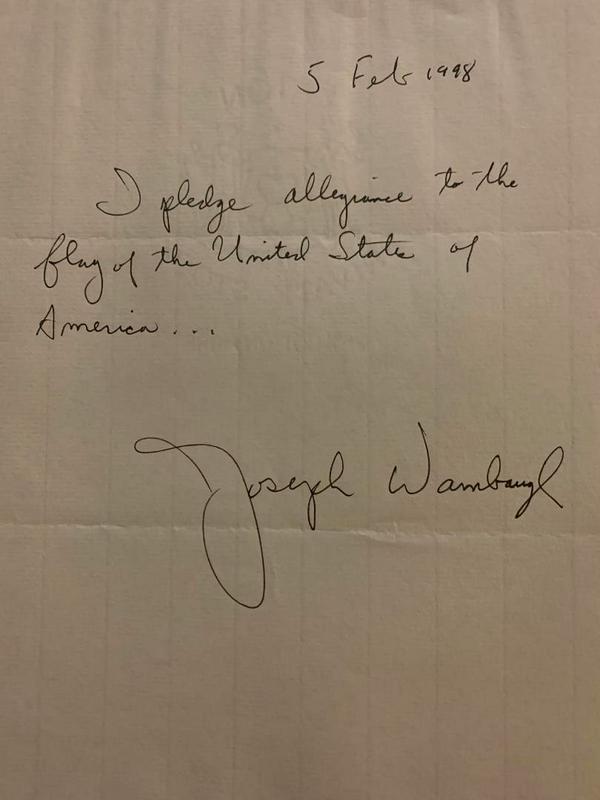 5 Feb 1998
I pledge allegiance to the
flag of the United States of
America...
Joseph Wambaugh